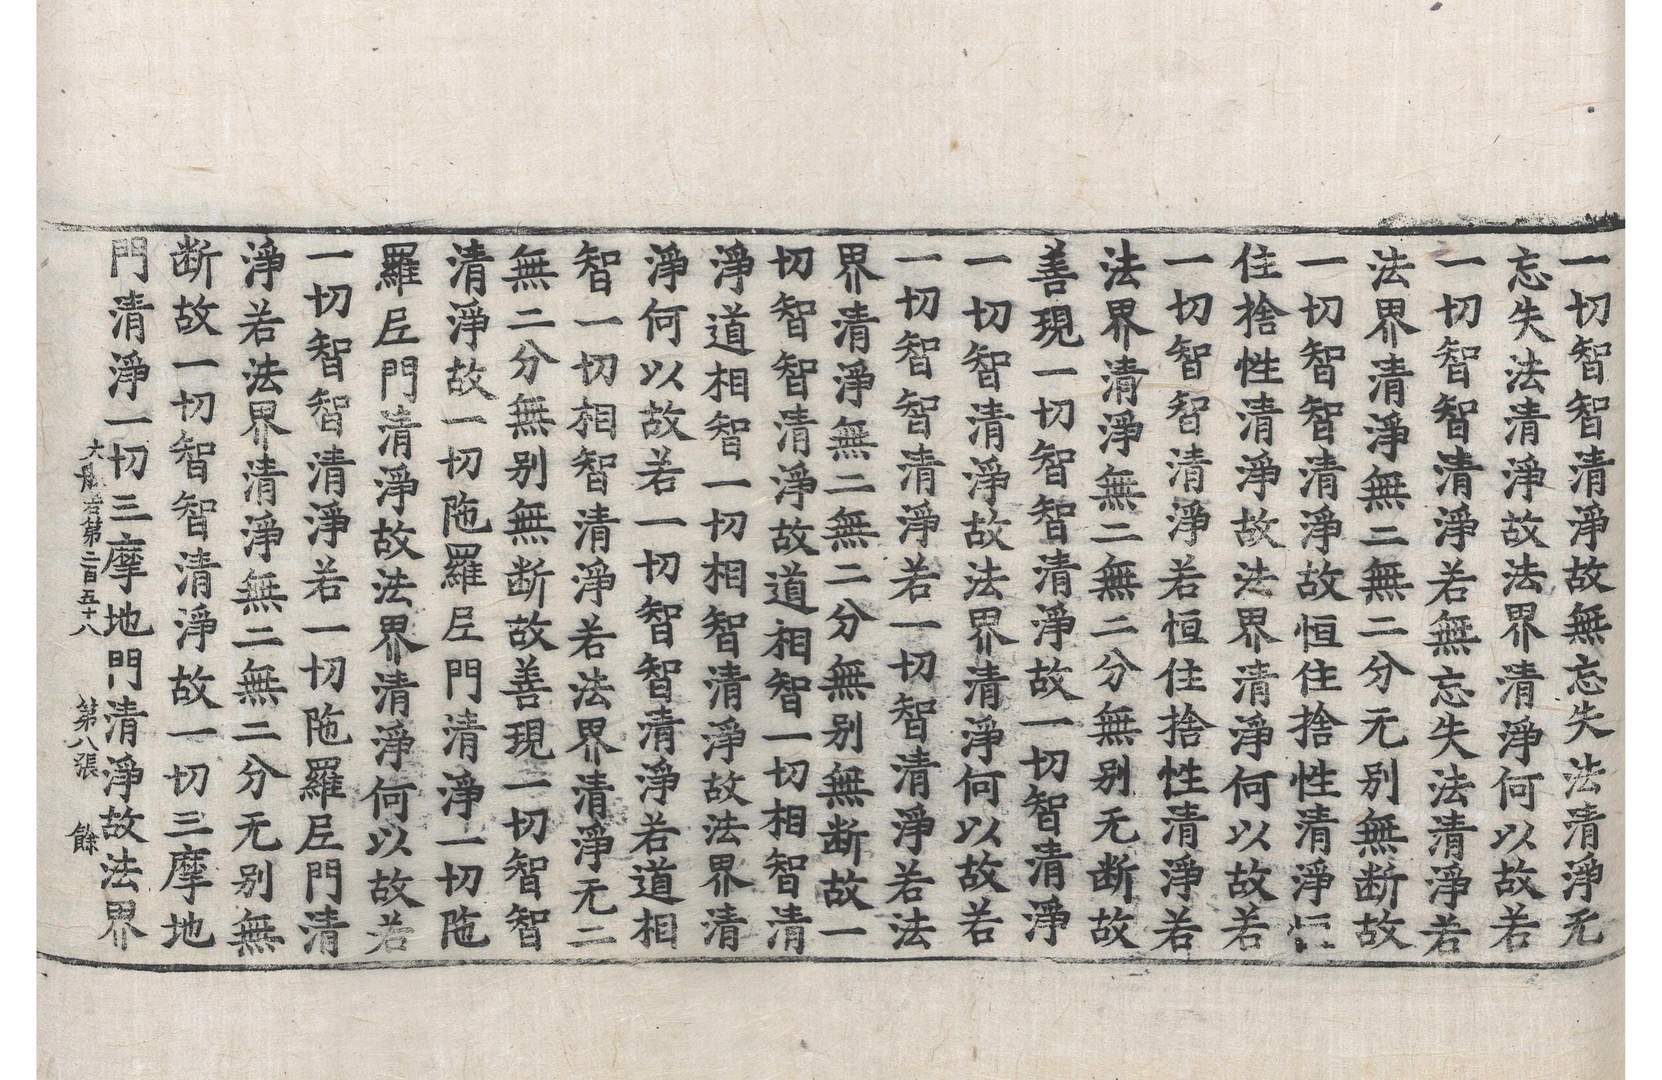 一切智智清淨故無忘失法清淨无
忘失法清淨故法界清淨何以故若
一切智智清淨若無忘失法清淨若
法界清淨無二無二分无别無断故
一切智智清淨故恒住捨性清淨恒
住捨性清淨故法界清淨何以故若
一切智智清淨若恒住捨性清淨若
法界清淨無二無二分無别无断故
善現一切智智清淨故一切智清淨
一切智清淨故法界清淨何以故若
一切智智清淨若一切智清淨若法
界清淨無二無二分無别無断故一
切智智清淨故道相智一切相智清
淨道相智一切相智清淨故法界清
淨何以故若一切智智清淨若道相
智一切相智清淨若法界清淨无二
無二分無别無断故善現一切智智
清淨故一切陁羅尼門清淨一切陁
羅尼門清淨故法界清淨何以故若
一切智智清淨若一切陁羅尼門清
淨若法界清淨無二無二分无别無
断故一切智智清淨故一切三摩地
門清淨一切三摩地門清淨故法界
大般若第二百五十八 第八張 餘